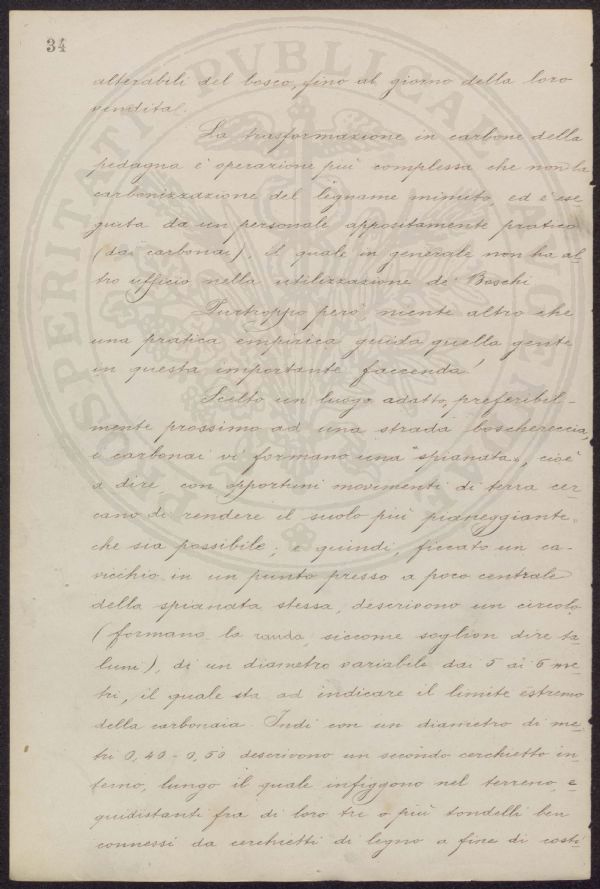 34
alterabili del bosco, fino al giorno della loro
vendita.
La trasformazione in carbone della
pedagna è operazione più complessa che non la
carbonizzazione del legname minuto, ed è ese-
guita da un personale appositamente pratico
(dai carbonai), il quale in generale non ha al-
tro ufficio nella utilizzazione de' Boschi
Purtroppo però niente altro che
una pratica empirica guida quella gente
in questa importante faccenda!
Scelto un luogo adatto, preferibil-
mente prossimo ad una strada boschereccia,
i carbonai vi formano una "spianata", cioè
a dire, con opportuni movimenti di terra cer-
cano di rendere il suolo più pianeggiante
che sia possibile; e quindi, ficcato un ca-
vicchio in un punto presso a poco centrale
della spianata stessa, descrivono un circolo,
(formano la ronda, siccome soglion dire ta-
luni), di un diametro variabile dai 5 ai 6 me-
tri, il quale sta ad indicare il limite estremo
della carbonaia. Indi con un diametro di me-
tri 0,40-0,50 descrivono un secondo cerchietto in-
terno, lungo il quale infiggono nel terreno, e-
quidistanti fra di loro tre o più tondelli ben
connessi da cerchietti di legno a fine di costi-
PROSPERITATI PVBLICAE AVGE